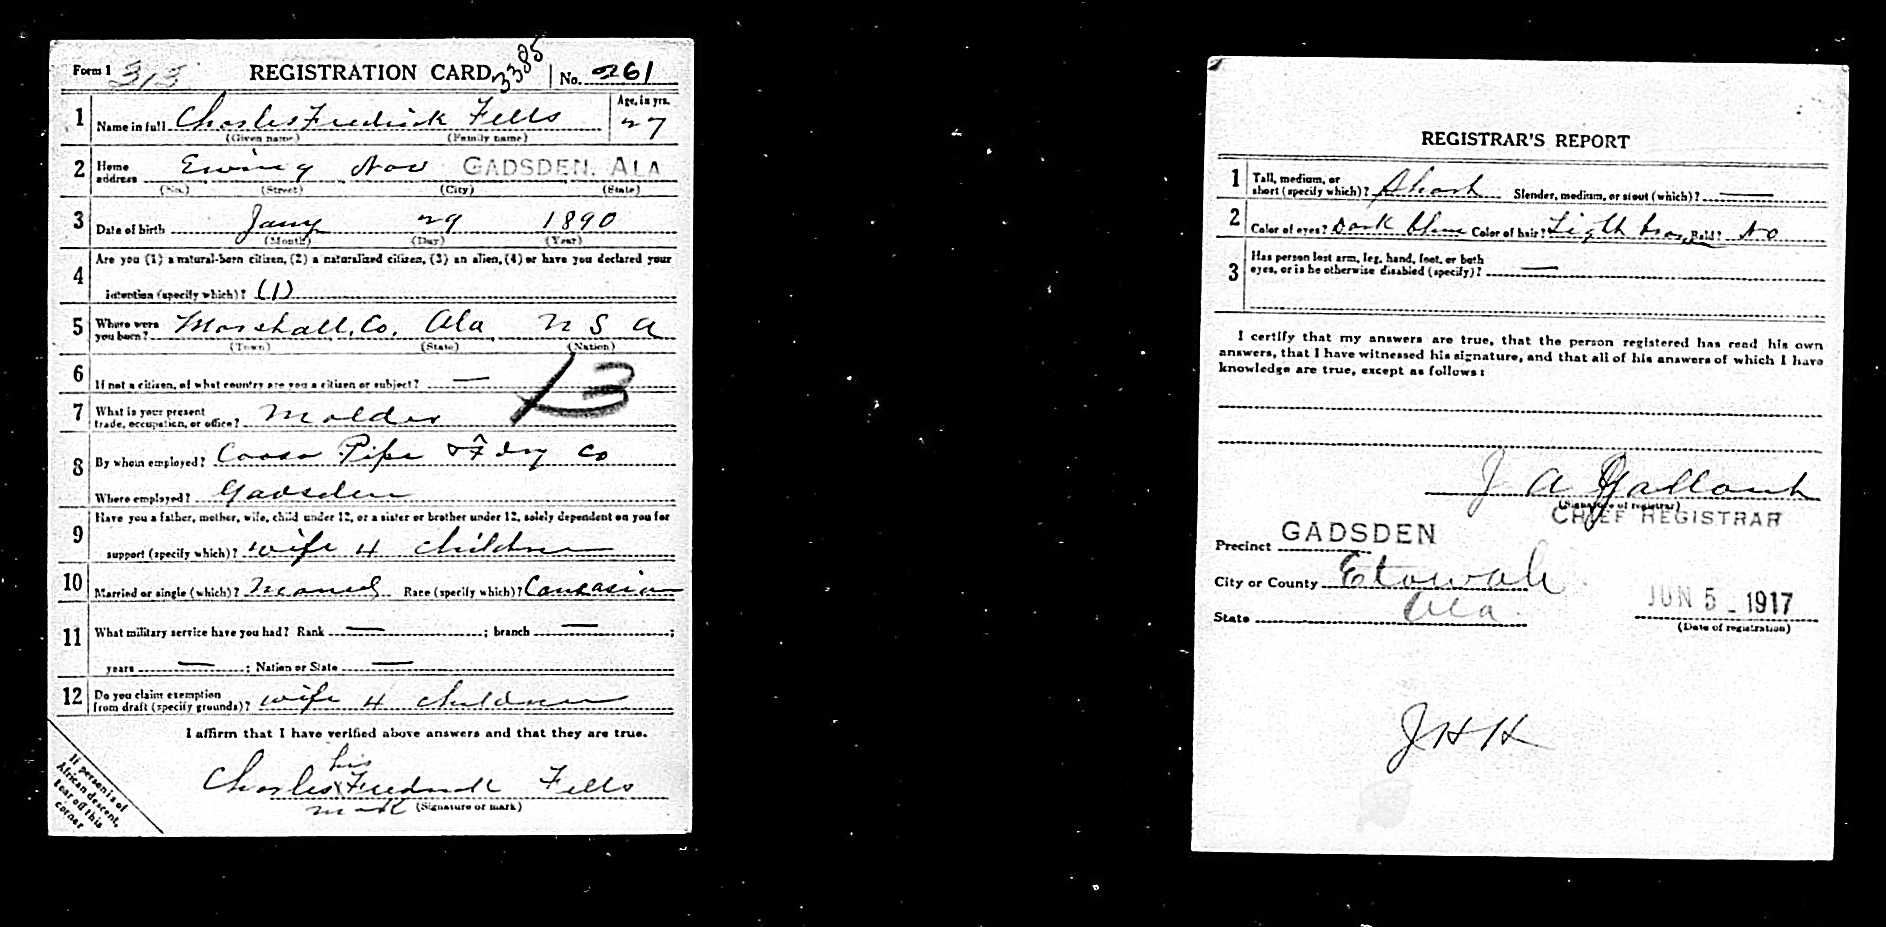 Form 1 313 REGISTRATION CARD 3385 No. 261
1 Name in full Charles Fredrick Fells Age, in yrs. 27
(Given name) (Family name)
2 Home address Ewing Ave GADSDEN, ALA
(No.) (Street) (City) (State)
3 Date of birth Jany 29 1890
(Month) (Day) (Year)
4 Are you (1) a natural-born citizen, (2) a naturalized citizen, (3) an alien, (4) or have you declared your
intention (specify which)? (1)
5 Where were you born? Marshall, Co. Ala U S A
(Town) (State) (Nation)
6 If not a citizen, of what country are you a citizen or subject? —
13
7 What is your present trade, occupation, or office? Molder
8 By whom employed? Coosa Pipe & Fdry Co
Where employed? Gadsden
9 Have you a father, mother, wife, child under 12, or a sister or brother under 12, solely dependent on you for
support (specify which)? wife 4 children
10 Married or single (which)? Married Race (specify which)? Caucasian
11 What military service have you had? Rank — ; branch — ;
years — ; Nation or State —
12 Do you claim exemption from draft (specify grounds)? wife 4 children
I affirm that I have verified above answers and that they are true.
his
Charles x Fredrick Fells
mark (Signature or mark)
If person is of
African descent,
tear off this
corner
REGISTRAR'S REPORT
1 Tall, medium, or short (specify which)? Short Slender, medium, or stout (which)? —
2 Color of eyes? Dark blue Color of hair? Light brown Bald? No
3 Has person lost arm, leg, hand, foot, or both
eyes, or is he otherwise disabled (specify)? —
I certify that my answers are true, that the person registered has read his own
answers, that I have witnessed his signature, and that all of his answers of which I have
knowledge are true, except as follows:
J A Gallant
(Signature of registrar)
CHIEF REGISTRAR
Precinct GADSDEN
City or County Etowah
State Ala
JUN 5 - 1917
(Date of registration)
J H H